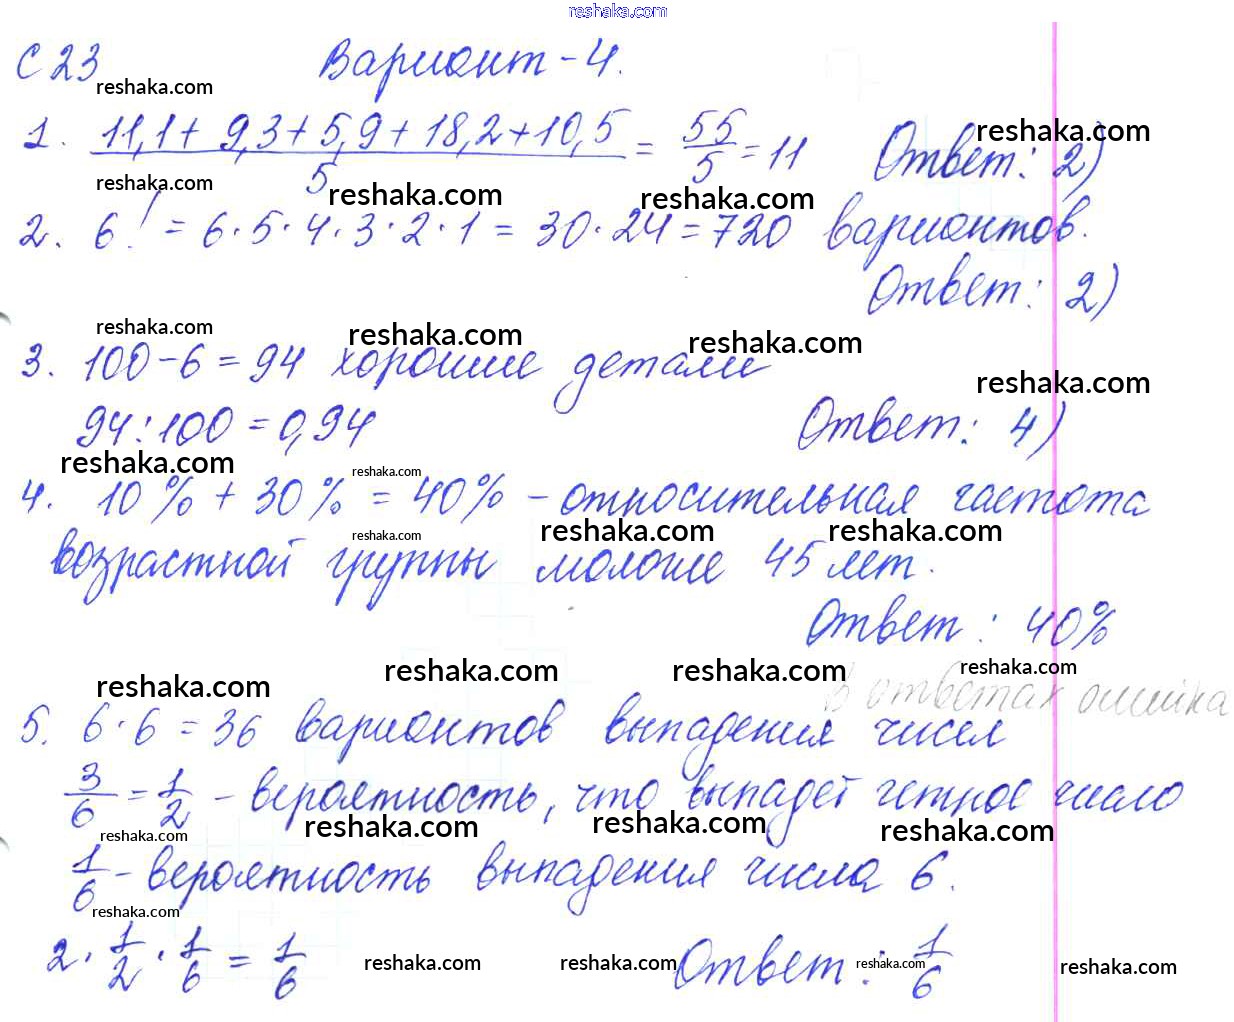 reshaka.com
С 23 Вариант - 4.
reshaka.com
1. (11,1 + 9,3 + 5,9 + 18,2 + 10,5)/5 = 55/5 = 11 Ответ: 2)
reshaka.com
reshaka.com reshaka.com reshaka.com
2. 6! = 6·5·4·3·2·1 = 30·24 = 720 вариантов.
Ответ: 2)
reshaka.com reshaka.com reshaka.com
3. 100 - 6 = 94 хорошие детали
reshaka.com
94:100 = 0,94 Ответ: 4)
reshaka.com reshaka.com
4. 10% + 30% = 40% - относительная частота
reshaka.com reshaka.com reshaka.com
возрастной группы моложе 45 лет.
Ответ: 40%
reshaka.com reshaka.com reshaka.com reshaka.com
В ответах ошибка
5. 6·6 = 36 вариантов выпадения чисел
3/6 = 1/2 - вероятность, что выпадет четное число
reshaka.com reshaka.com reshaka.com reshaka.com
1/6 - вероятность выпадения числа 6.
reshaka.com
2 · 1/2 · 1/6 = 1/6 Ответ: 1/6
reshaka.com reshaka.com reshaka.com reshaka.com